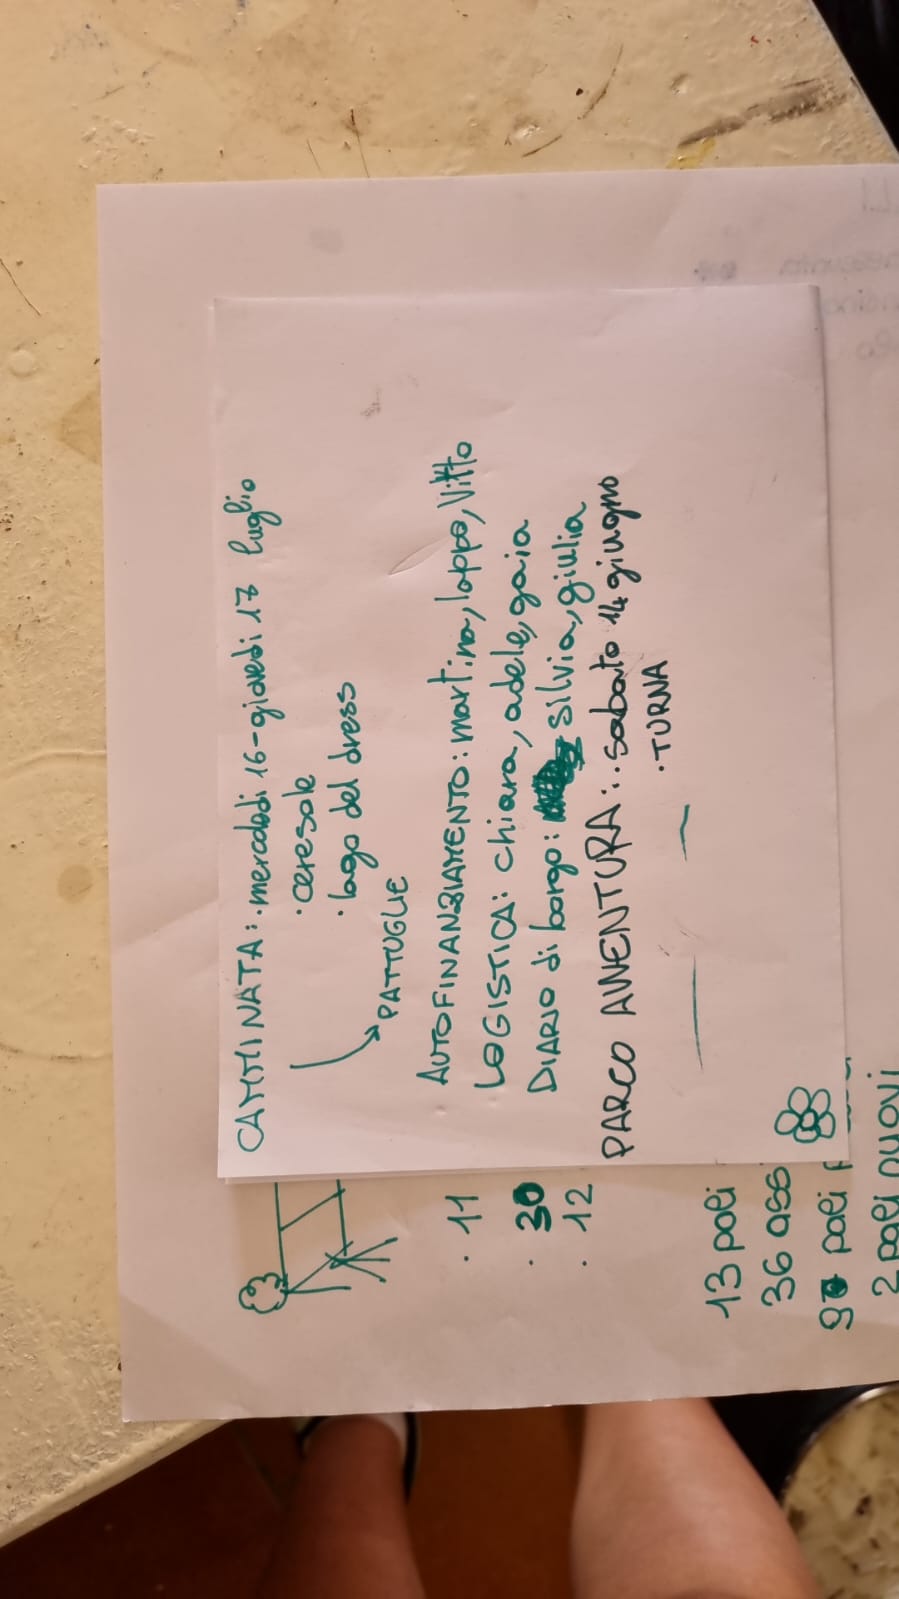 CAMMINATA: · mercoledì 16 - giovedì 17 luglio
· ceresole
· lago del dress
PATTUGLIE
AUTOFINANZIAMENTO: martina, loppo, Vitto
LOGISTICA: chiara, adele, gaia
DIARIO di borgo: silvia, giulia
PARCO AVVENTURA: · sabato 14 giugno
· TURNA
· 11
· 30
· 12
13 pali
36 ass
pali
2 pali nuovi